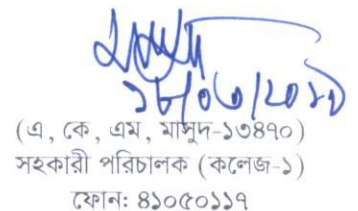 ১৮/০৩/২০১৯
(এ, কে, এম, মাসুদ-১৩৪৭০)
সহকারী পরিচালক (কলেজ-১)
ফোন: ৪১০৫০১১৭